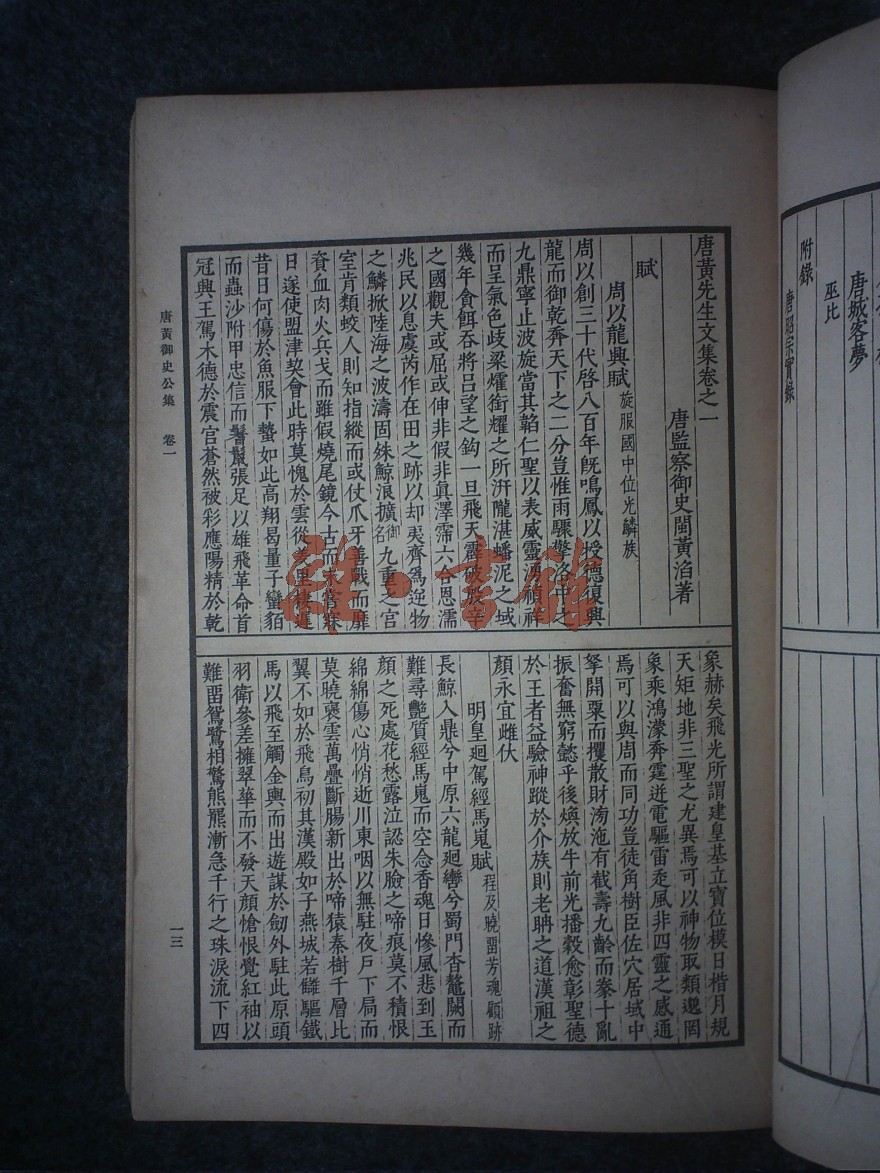 唐黃先生文集卷之一
唐監察御史閩黃滔著
賦
周以龍興賦 旋服國中位光鱗族
周以創三十代啓八百年旣鳴鳳以授德復興
龍而御乾奔天下之二分豈惟雨驟擎洛中之
九鼎寧止波旋當其韜仁聖以表威靈湧禎祥
而呈氣色歧梁燿銜耀之所汧隴湛蟠泥之域
幾年食餌吞將呂望之鈎一旦飛天霹破殷辛
之國觀夫或屈或伸非假非眞澤霈六合恩濡
兆民以息虞芮作在田之跡以却夷齊爲逆物
之鱗掀陸海之波濤固殊鯨浪擴御名九重之宫
室肯類蛟人則知指縱而或仗爪牙善戰而靡
資血肉火兵戈而雖假燒尾鏡今古而未嘗寐
日遂使盟津契會此時莫愧於雲從羑里棲遲
昔日何傷於魚服下蟄如此高翔曷量子蠻貊
而蟲沙附甲忠信而鬐鬣張足以雄飛革命首
冠興王駕木德於震宮蒼然被彩應陽精於乾
象赫矣飛光所謂建皇基立寶位模日楷月規
天矩地非三聖之尤異焉可以神物取類邈罔
象乘鴻濛奔霆迸電驅雷走風非四靈之感通
焉可以與周而同功豈徒角樹臣佐穴居域中
拏開粟而攫散財洶沲有截壽九齡而豢十亂
振奮無窮懿乎後煥放牛前光播穀愈彰聖德
於王者益驗神蹤於介族則老聃之道漢祖之
顏永宜雌伏
明皇迴駕經馬嵬賦 程及曉留芳魂顧跡
長鯨入鼎兮中原六龍迴轡兮蜀門杳鼇闕而
難尋艷質經馬嵬而空念香魂日慘風悲到玉
顏之死處花愁露泣認朱臉之啼痕莫不積恨
綿綿傷心悄悄逝川東咽以無駐夜戶下扃而
莫曉褒雲萬疊斷腸新出於啼猿秦樹千層比
翼不如於飛鳥初其漢殿如子燕城若讎驅鐵
馬以飛至觸金輿而出遊謀於劒外駐此原頭
羽衛參差擁翠華而不發天顏愴恨覺紅袖以
難畱鴛鷺相驚熊羆漸急千行之珠淚流下四
唐黃御史公集 卷一
一三
附錄
唐昭宗實錄
巫比
唐城客夢